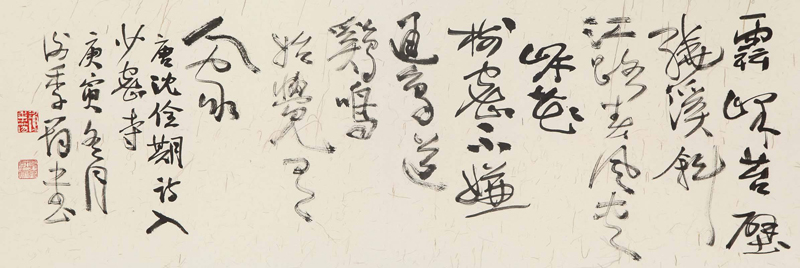 雲峰苔壁
繞溪斜
江路香風夾
岸花
樹密不嫌
通鳥道
鷄鳴
始覺有
人家
唐沈佺期詩入
少密寺
庚寅冬月
書